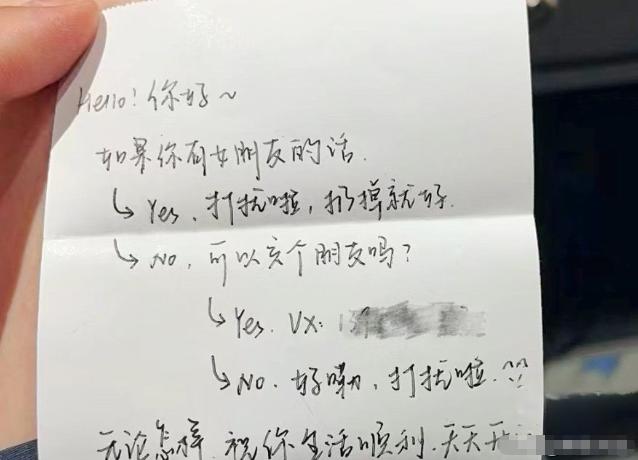 Hello! 你好~
如果你有女朋友的话.
↳ Yes, 打扰啦, 扔掉就好.
↳ No, 可以交个朋友吗?
↳ Yes. VX:
↳ No. 好嘞, 打扰啦.
无论怎样, 祝你生活顺利, 天天开